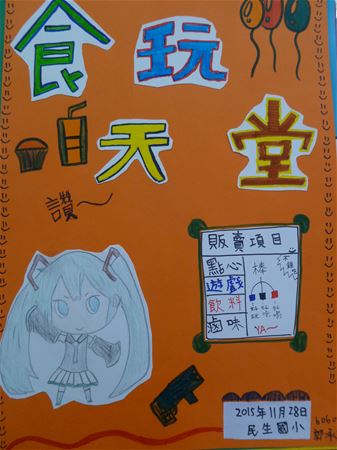 食玩
天堂
讚～
販賣項目
點心
遊戲
飲料
滷味
棒
好玩
好吃
好喝
YA～
2015年11月28日
民生國小